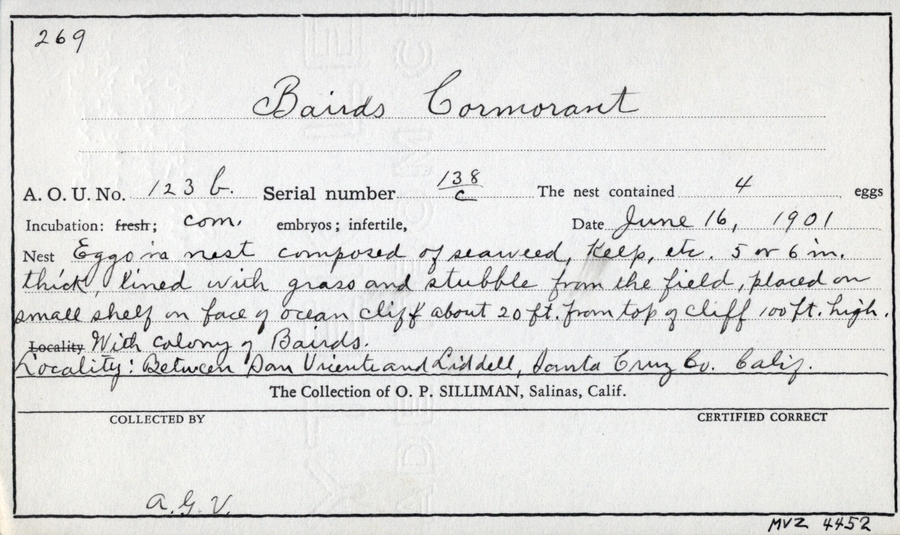 269
Bairds Cormorant
A. O. U. No. 123 b. Serial number 138/C The nest contained 4 eggs
Incubation: fresh; com. embryos; infertile, Date June 16, 1901
Nest Eggs in nest composed of seaweed, Kelp, etc. 5 or 6 in.
thick, lined with grass and stubble from the field, placed on
small shelf on face of ocean cliff about 20 ft. from top of cliff 100 ft. high.
Locality With colony of Bairds.
Locality: Between San Vicente and Liddell, Santa Cruz Co. Calif.
The Collection of O. P. SILLIMAN, Salinas, Calif.
COLLECTED BY CERTIFIED CORRECT
A. G. V.
MVZ 4452